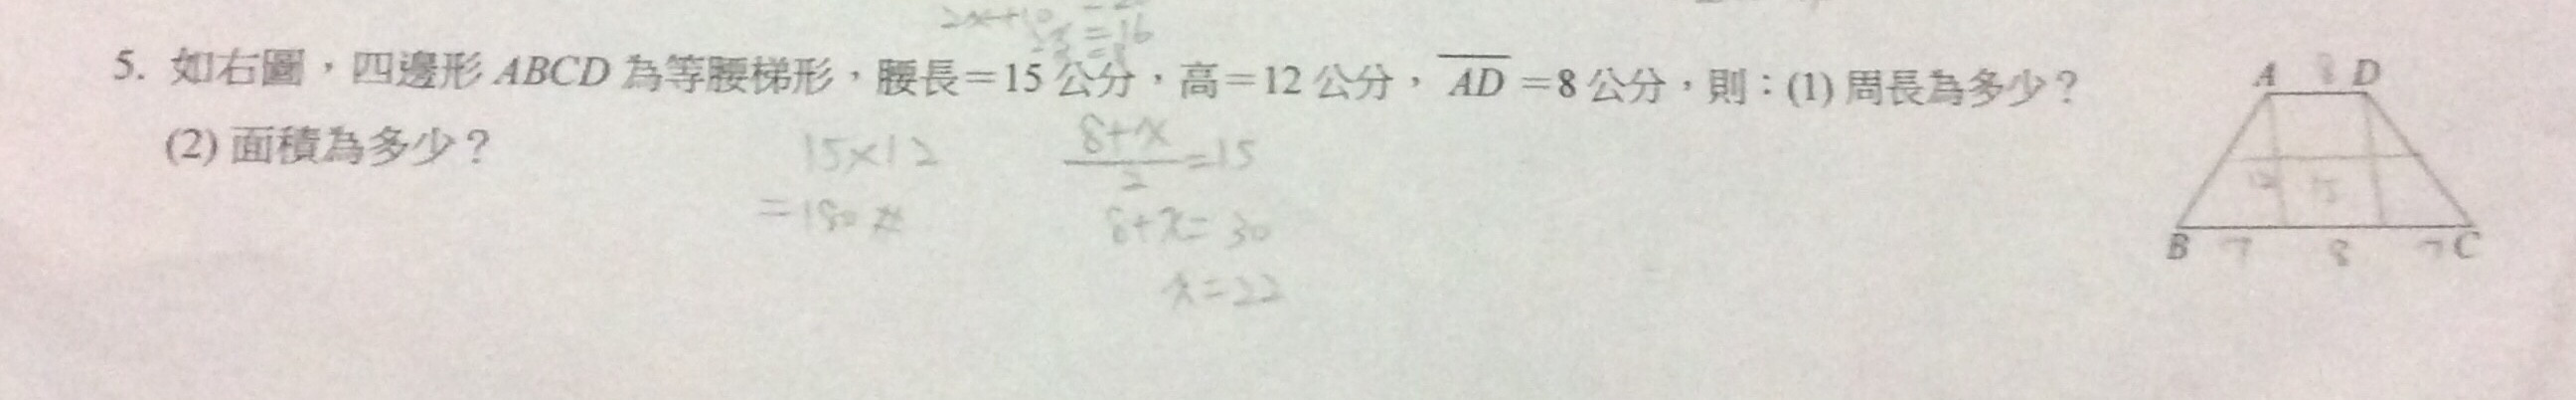 2x+10
=16
5. 如右圖，四邊形 ABCD 為等腰梯形，腰長=15 公分，高=12 公分，AD =8 公分，則：(1) 周長為多少？
(2) 面積為多少？
15×12
=180
8+x
2
=15
8+x=30
x=22
A 8 D
12 15
B 7 8 7 C